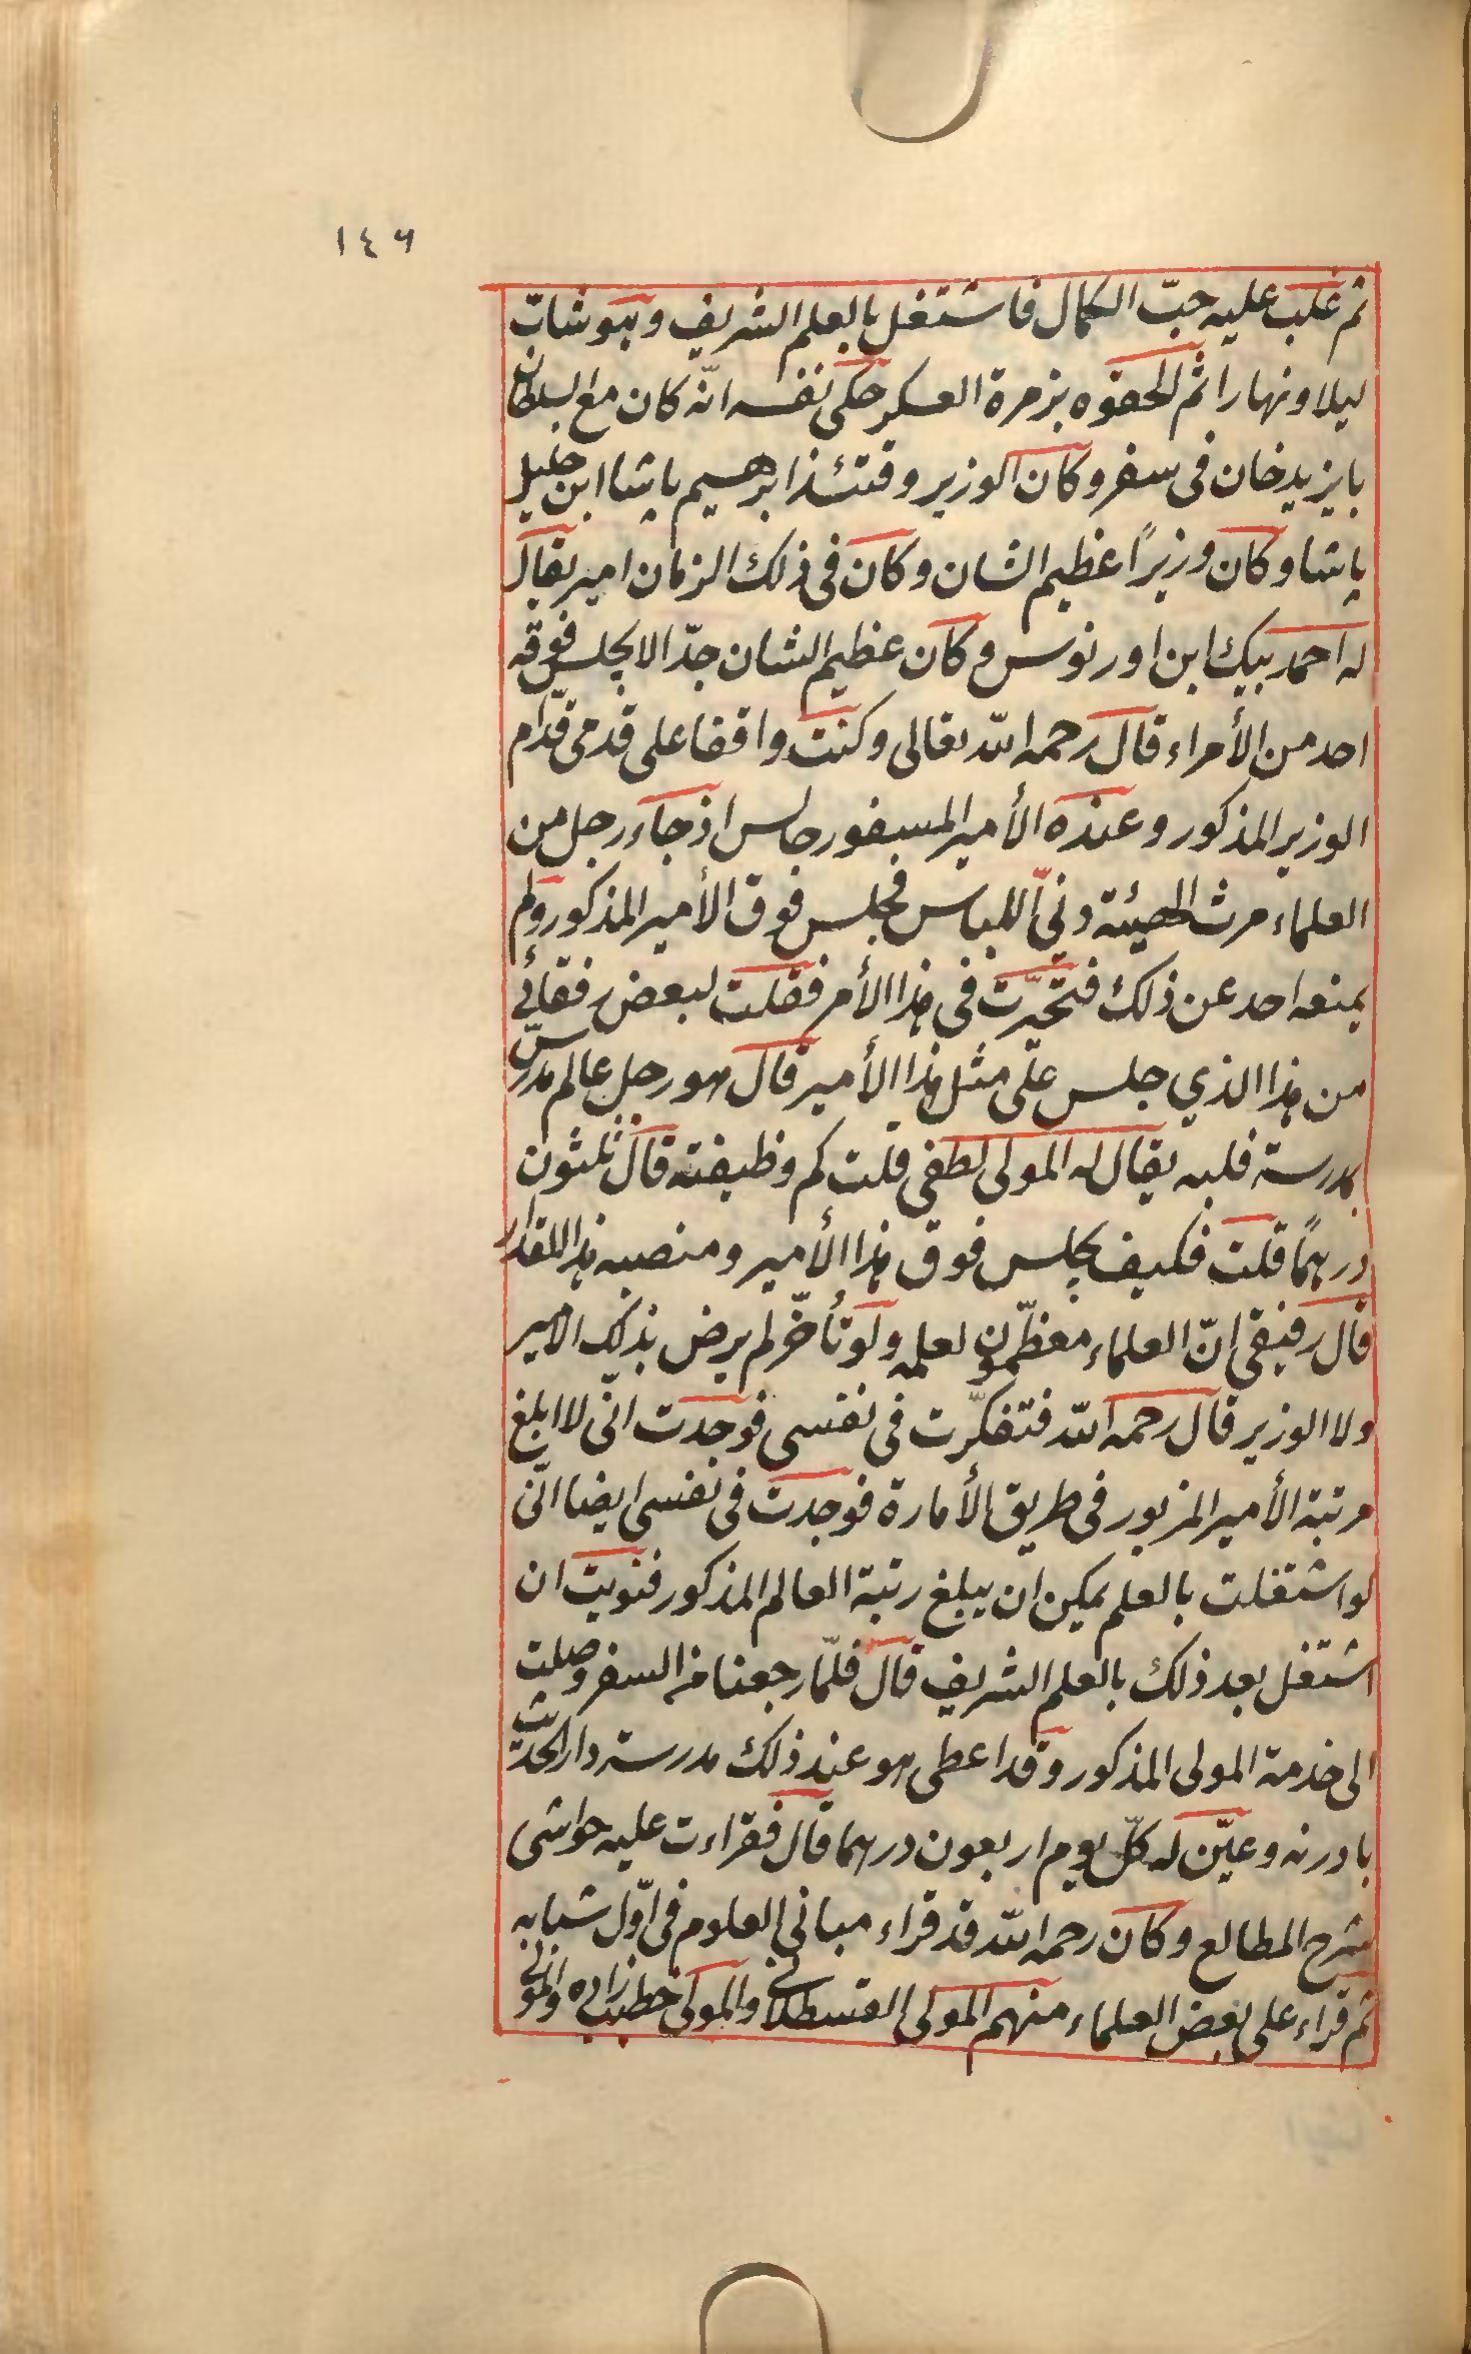 ١٤٦
ثم غلب عليه حبّ الكمال فاشتغل بالعلم الشريف وهو شابّ
ليلا ونهارا ثم الحقوه بزمرة العسكر حكى نفسه انّه كان مع السلطان
بايزيد خان فى سفر وكان الوزير وقتئذ ابرهيم باشا ابن خليل
باشا وكان وزيرًا عظيم الشان وكان فى ذلك الزمان امير يقال
له احمد بيك ابن اورنوس وكان عظيم الشان جدّا لا يجلس فوقه
احد من الأمراء قال رحمه الله تعالى وكنت واقفا على قدمى قدّام
الوزير المذكور وعنده الأمير المسفور جالس اذ جاء رجل من
العلماء مرث الهيئة دنىّ اللباس فجلس فوق الأمير المذكور ولم
يمنعه احد عن ذلك فتحيّرت فى هذا الأمر فقلت لبعض رفقائى
من هذا الذي جلس على مثل هذا الأمير قال هو رجل عالم مدرّس
بمدرسة فلبه يقال له المولى لطفى قلت كم وظيفته قال ثلثون
درهمًا قلت فكيف يجلس فوق هذا الأمير ومنصبه هذا المقدار
قال رفيقى انّ العلماء معظّمون لعلمه ولو تأخّر لم يرض بذلك الامير
ولا الوزير قال رحمه الله فتفكّرت فى نفسى فوجدت انّى لا ابلغ
مرتبة الأمير المزبور فى طريق الأمارة فوجدت فى نفسى ايضا انّى
لو اشتغلت بالعلم يمكن ان يبلغ رتبة العالم المذكور فنويت ان
اشتغل بعد ذلك بالعلم الشريف قال فلمّا رجعنا من السفر وصلت
الى خدمة المولى المذكور وقد اعطى هو عند ذلك مدرسة دار الحديث
بادرنه وعيّن له كلّ يوم اربعون درهما قال فقراءت عليه حواشى
شرح المطالع وكان رحمه الله قد قراء مبانى العلوم فى اوّل شبابه
ثم قراء على بعض العلماء منهم المولى القسطلانى والمولى خطيب زاده والمولى